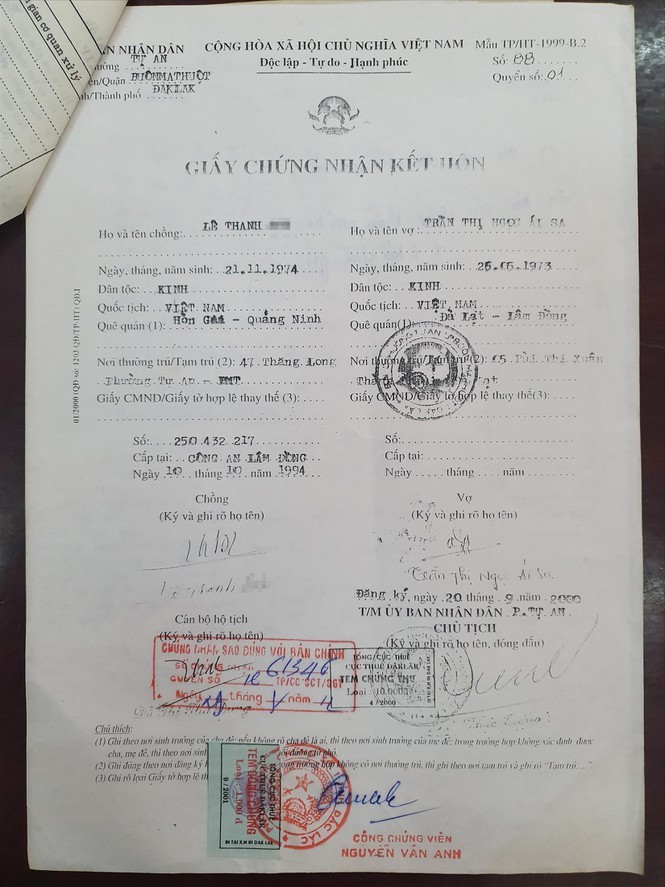 gian cơ quan xử lý
AN NHÂN DÂN
TỰ AN
BUÔNMATHUỘT
/Thành phố ĐAKLAK
CỘNG HÒA XÃ HỘI CHỦ NGHĨA VIỆT NAM
Độc lập - Tự do - Hạnh phúc
Mẫu TP/HT-1999-B.2
Số: 88
Quyển số: 01
GIẤY CHỨNG NHẬN KẾT HÔN
Họ và tên chồng: LÊ THANH
Ngày, tháng, năm sinh: 21.11.1974
Dân tộc: KINH
Quốc tịch: VIỆT NAM
Quê quán (1): Hòn Gai - Quảng Ninh
Nơi thường trú/Tạm trú (2): 47 Thăng Long
Phường Tự An - BMT
Giấy CMND/Giấy tờ hợp lệ thay thế (3):
Số: 250.432.217
Cấp tại: CÔNG AN LÂM ĐỒNG
Ngày 10 tháng 10 năm 1994
Chồng
(Ký và ghi rõ họ tên)
Cán bộ hộ tịch
(Ký và ghi rõ họ tên)
Họ và tên vợ: TRẦN THỊ NGỌC ÁI SA
Ngày, tháng, năm sinh: 1973
Dân tộc: KINH
Quốc tịch: VIỆT NAM
Quê quán (1): Đà Lạt - Lâm Đồng
Nơi thường trú/Tạm trú (2): Thị Xuân
Giấy CMND/Giấy tờ hợp lệ thay thế(3):
Số:
Cấp tại:
Ngày tháng năm
Vợ
(Ký và ghi rõ họ tên)
Trần Thị Ngọc Ái Sa
Đăng ký, ngày 20 tháng 9 năm 2000
T/M ỦY BAN NHÂN DÂN P.TỰ AN
CHỦ TỊCH
(Ký và ghi rõ họ tên, đóng dấu)
CHỨNG NHẬN SAO ĐÚNG VỚI BẢN CHÍNH
QUYỂN SỐ TP/CC SCT/SGT
Ngày tháng năm
TỔNG CỤC THUẾ
CỤC THUẾ ĐAKLAK
TEM CHỨNG THƯ
Loại 10.000đ
4/2000
Chú thích:
(1) Ghi theo nơi sinh trưởng của cha đẻ; nếu không rõ cha đẻ là ai, thì theo nơi sinh trưởng của mẹ đẻ; trong trường hợp không xác định được
cha, mẹ đẻ, thì theo nơi sinh
(2) Ghi đúng theo nơi đăng ký hợp không có nơi thường trú, thì ghi theo nơi tạm trú và ghi rõ "Tạm trú....."
(3) Ghi rõ loại Giấy tờ hợp lệ
9/2001
CÔNG CHỨNG VIÊN
NGUYỄN VÂN ANH